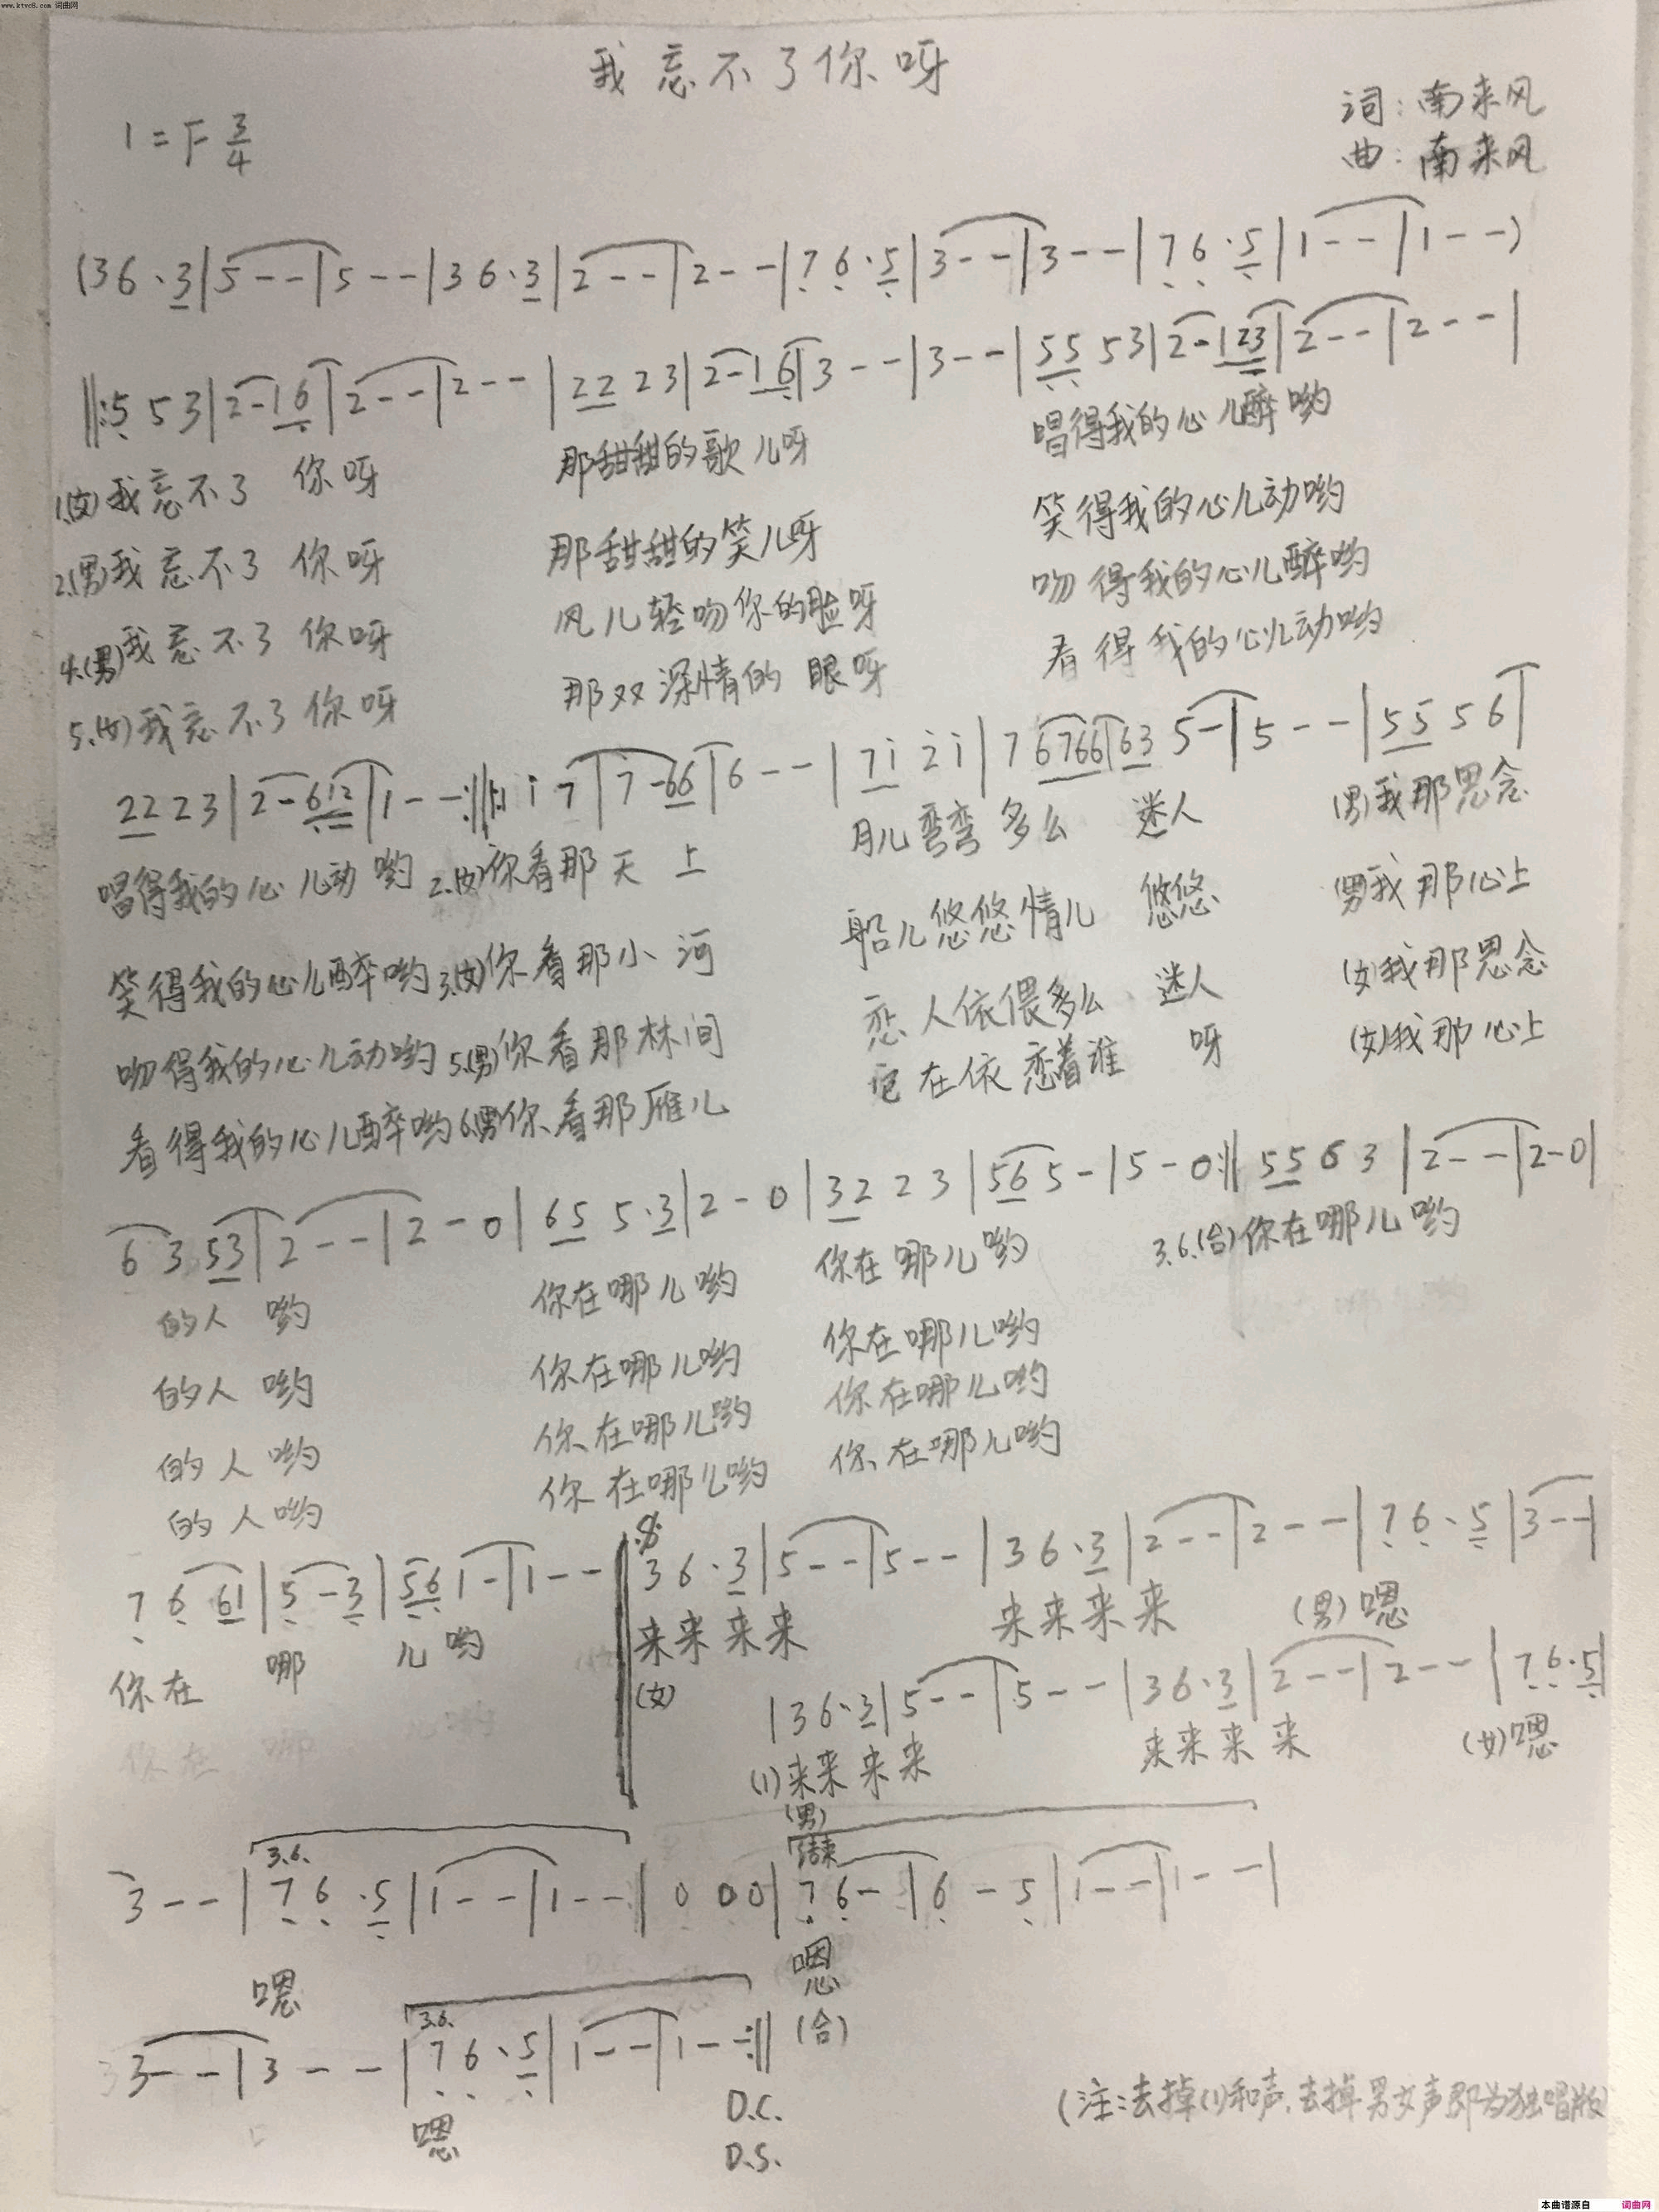 www.ktvc8.com 词曲网
我忘不了你呀
1=F 3/4
词:南来风
曲:南来风
(36·3|5--|5--|36·3|2--|2--|76·5|3--|3--|76·5|1--|1--)
||:5 53|2-16|2--|2--|22 23|2-16|3--|3--|55 53|2-123|2--|2--|
1.(女)我忘不了 你呀 那甜甜的歌儿呀 唱得我的心儿醉哟
2.(男)我忘不了 你呀 那甜甜的笑儿呀 笑得我的心儿动哟
4.(男)我忘不了 你呀 风儿轻吻你的脸呀 吻得我的心儿醉哟
5.(女)我忘不了 你呀 那双深情的眼呀 看得我的心儿动哟
22 23|2-612|1--:||:1 i 7|7-66|6--|7i 2i|7 6766|63 5-|5--|55 56|
唱得我的心儿动哟 2.(女)你看那天上 月儿弯弯多么 迷人 (男)我那思念
笑得我的心儿醉哟 3.(女)你看那小河 船儿悠悠情儿 悠悠 (男)我那心上
吻得我的心儿动哟 5.(男)你看那林间 恋人依偎多么 迷人 (女)我那思念
看得我的心儿醉哟 6.(男)你看那雁儿 在依恋着谁 呀 (女)我那心上
63 53|2--|2-0|65 5·3|2-0|32 23|56 5-|5-0:|| 55 63|2--|2-0|
的人 哟 你在哪儿哟 你在哪儿哟 3.6.(合)你在哪儿哟
的人 哟 你在哪儿哟 你在哪儿哟
的人 哟 你在哪儿哟 你在哪儿哟
的人哟 你在哪儿哟 你在哪儿哟
7 6 61|5-3|56 1-|1--||36·3|5--|5--|36·3|2--|2--|76·5|3--|
你在 哪 儿哟 来来来来 来来来来 (男)嗯
(女)
|36·3|5--|5--|36·3|2--|2--|76·5|
(1)来来来来 来来来来 (女)嗯
(男)
3.6. 结束
3--|76·5|1--|1--|0 00|76-|6-5|1--|1--|
嗯 嗯
(合)
3.6.
3--|3--|76·5|1--|1--:||
嗯
D.C.
D.S.
(注:去掉(1)和声,去掉男女声即为独唱版)
本曲谱源自 词曲网